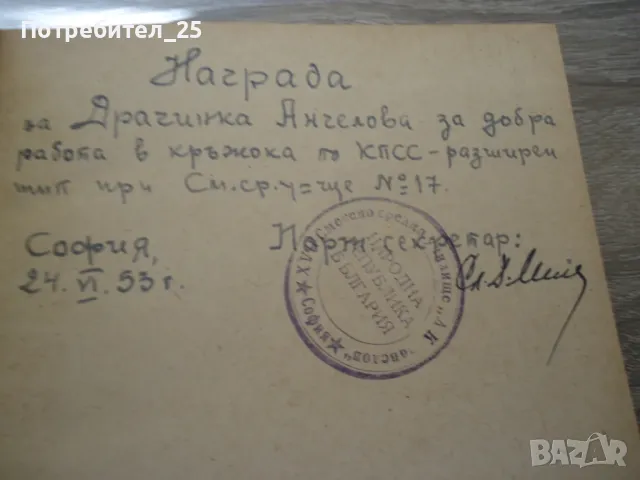 Потребител_25
Награда
на Драгинка Ангелова за добра
работа в кръжока по КПСС - разширен
тип при См. ср. у-ще № 17.
София, Парт. секретар:
24. VI. 53 г.
XVII Смесено средно училище „А К
София
НАРОДНА
РЕПУБЛИКА
БЪЛГАРИЯ
bazar